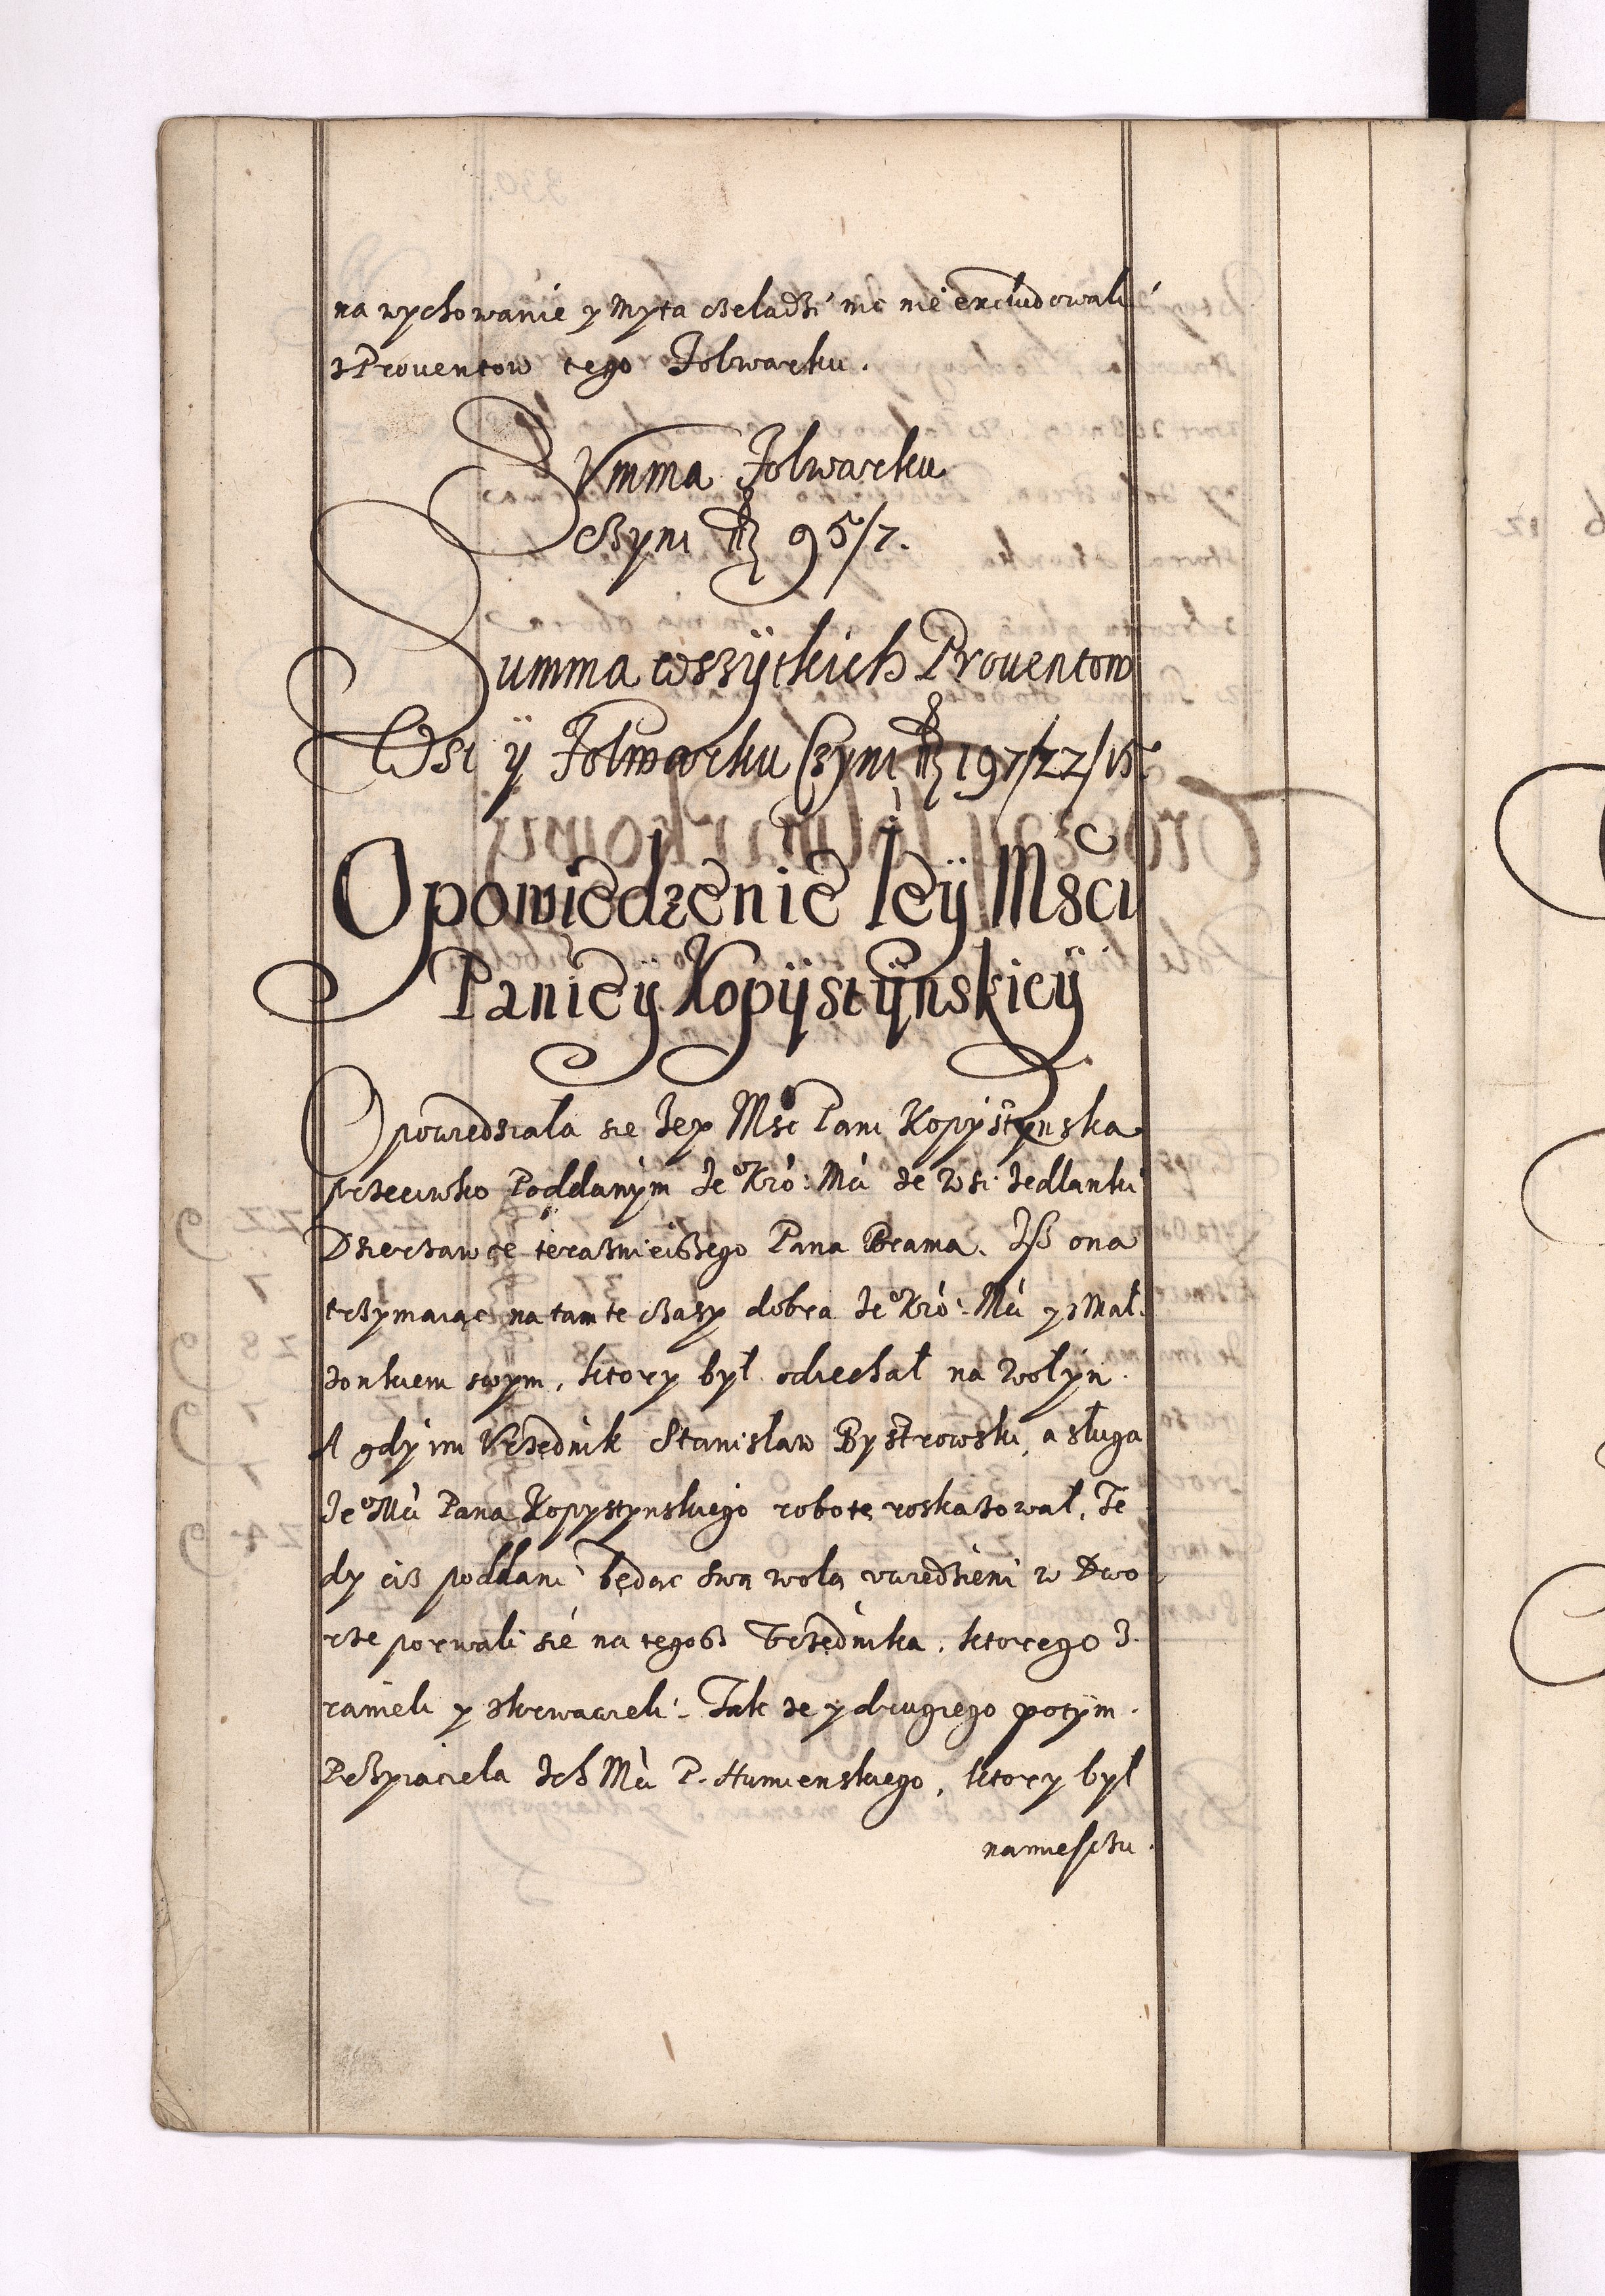 na wychowanie y Myta czeladzi nic nie excludowali
z Prouentow tego Folwarku.
Summa Folwarku
Czyni fl 95/7.
Summa wszÿtkich Prouentow
Wsi ÿ Folwarku Czyni fl 197/22/15.
Opowiedzenie Ieÿ Msci
Panieÿ Kopÿstÿnskieÿ
Opowiedziała sie Jey Msc Pani Kopystynska
przeciwko Poddanym Je° Kro: Mci ze Wsi Jedlanki
Dzierzawce teraznieiszego Pana Brama. Jsz ona
trzymaiąc na tamte czasy dobra Je° Kro: Mci y z Mał
zonkiem swym, ktory był odiechał na Wołyn.
A gdy im Vrzędnik Stanisław Bystrowski, a sługa
Je° Mci Pana Kopystynskiego robotę roskazował, Te
dy ciż poddani będąc swą wolą vwiedzieni w Dwo
rze porwali sie na tegosz Vrzędnika, ktorego z
ranieli y skrwawieli. Tak ze y drugiego potym
Przyiaciela Jch Mci P. Humienskiego, ktory był
namiesczu